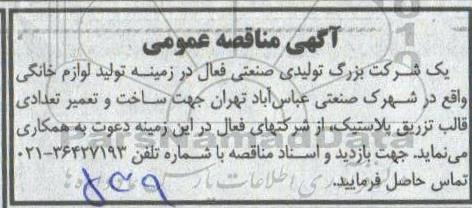 آگهی مناقصه عمومی
یک شرکت بزرگ تولیدی صنعتی فعال در زمینه تولید لوازم خانگی
واقع در شهرک صنعتی عباس‌آباد تهران جهت ساخت و تعمیر تعدادی
قالب تزریق پلاستیک، از شرکتهای فعال در این زمینه دعوت به همکاری
می‌نماید. جهت بازدید و اسناد مناقصه با شماره تلفن ۳۶۴۲۷۱۹۳-۰۲۱
تماس حاصل فرمایید.